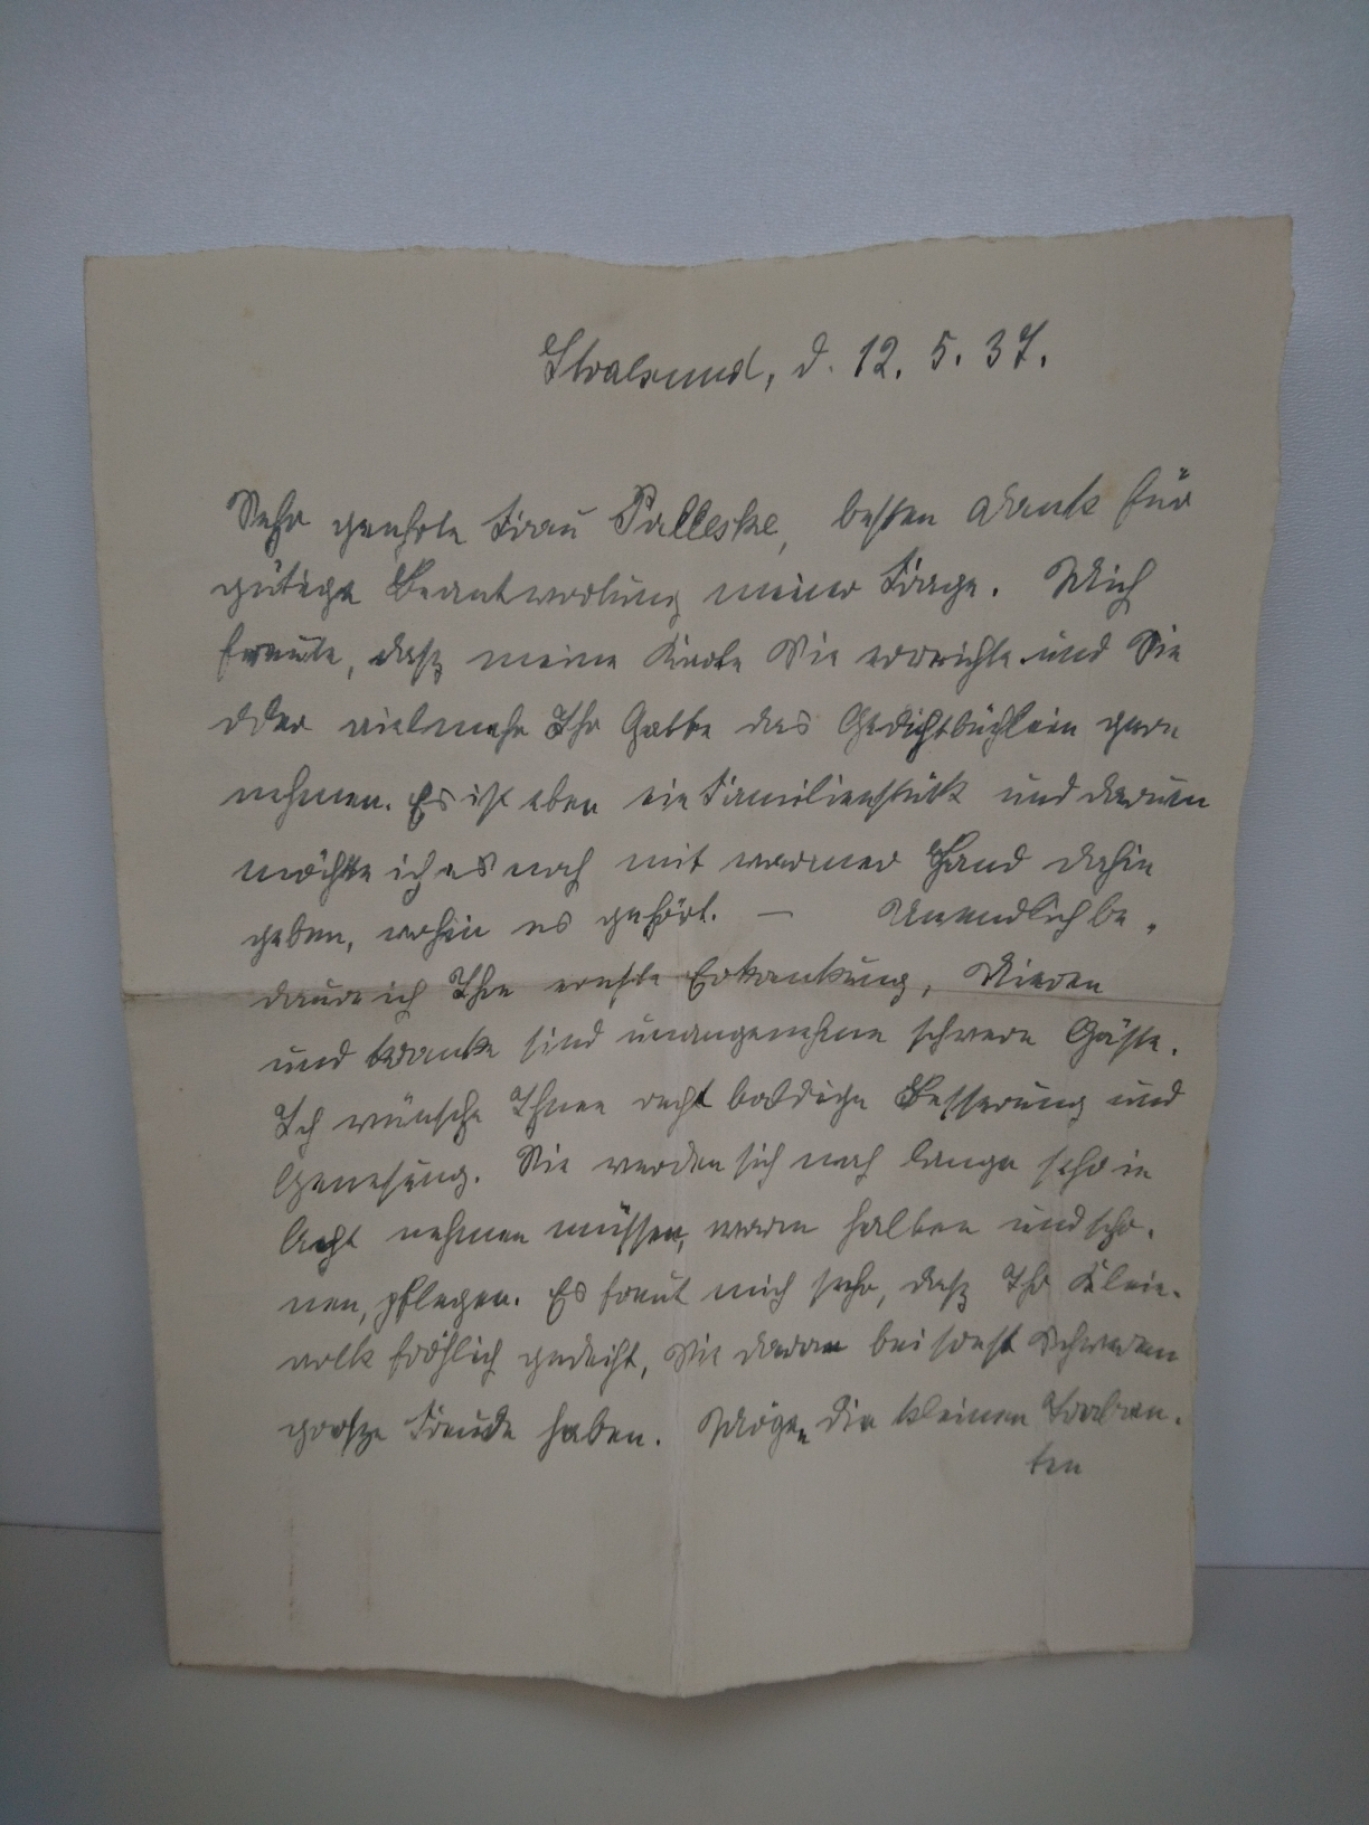 Stralsund, d. 12. 5. 37.
Sehr geehrte Frau Palleske, besten Dank für
gütige Beantwortung meiner Frage. Mich
freute, daß meine Karte Sie erreichte und Sie
oder vielmehr Ihr Gatte das Gedichtbüchlein gern
nehmen. Es ist eben ein Familienstück und darum
möchte ich es noch mit warmer Hand dahin
geben, wohin es gehört. — Unendlich be-
daure ich Ihre ernste Erkrankung, Nieren
und kranke sind unangenehme schwere Gäste.
Ich wünsche Ihnen recht baldige Besserung und
Genesung. Sie werden sich noch lange sehr in
Acht nehmen müssen, warm halten und scho-
nen, pflegen. Es freut mich sehr, daß Ihr Klein-
volk fröhlich gedeiht, Sie daran bei sonst Schwerem
große Freude haben. Mögen die kleinen Traban-
ten